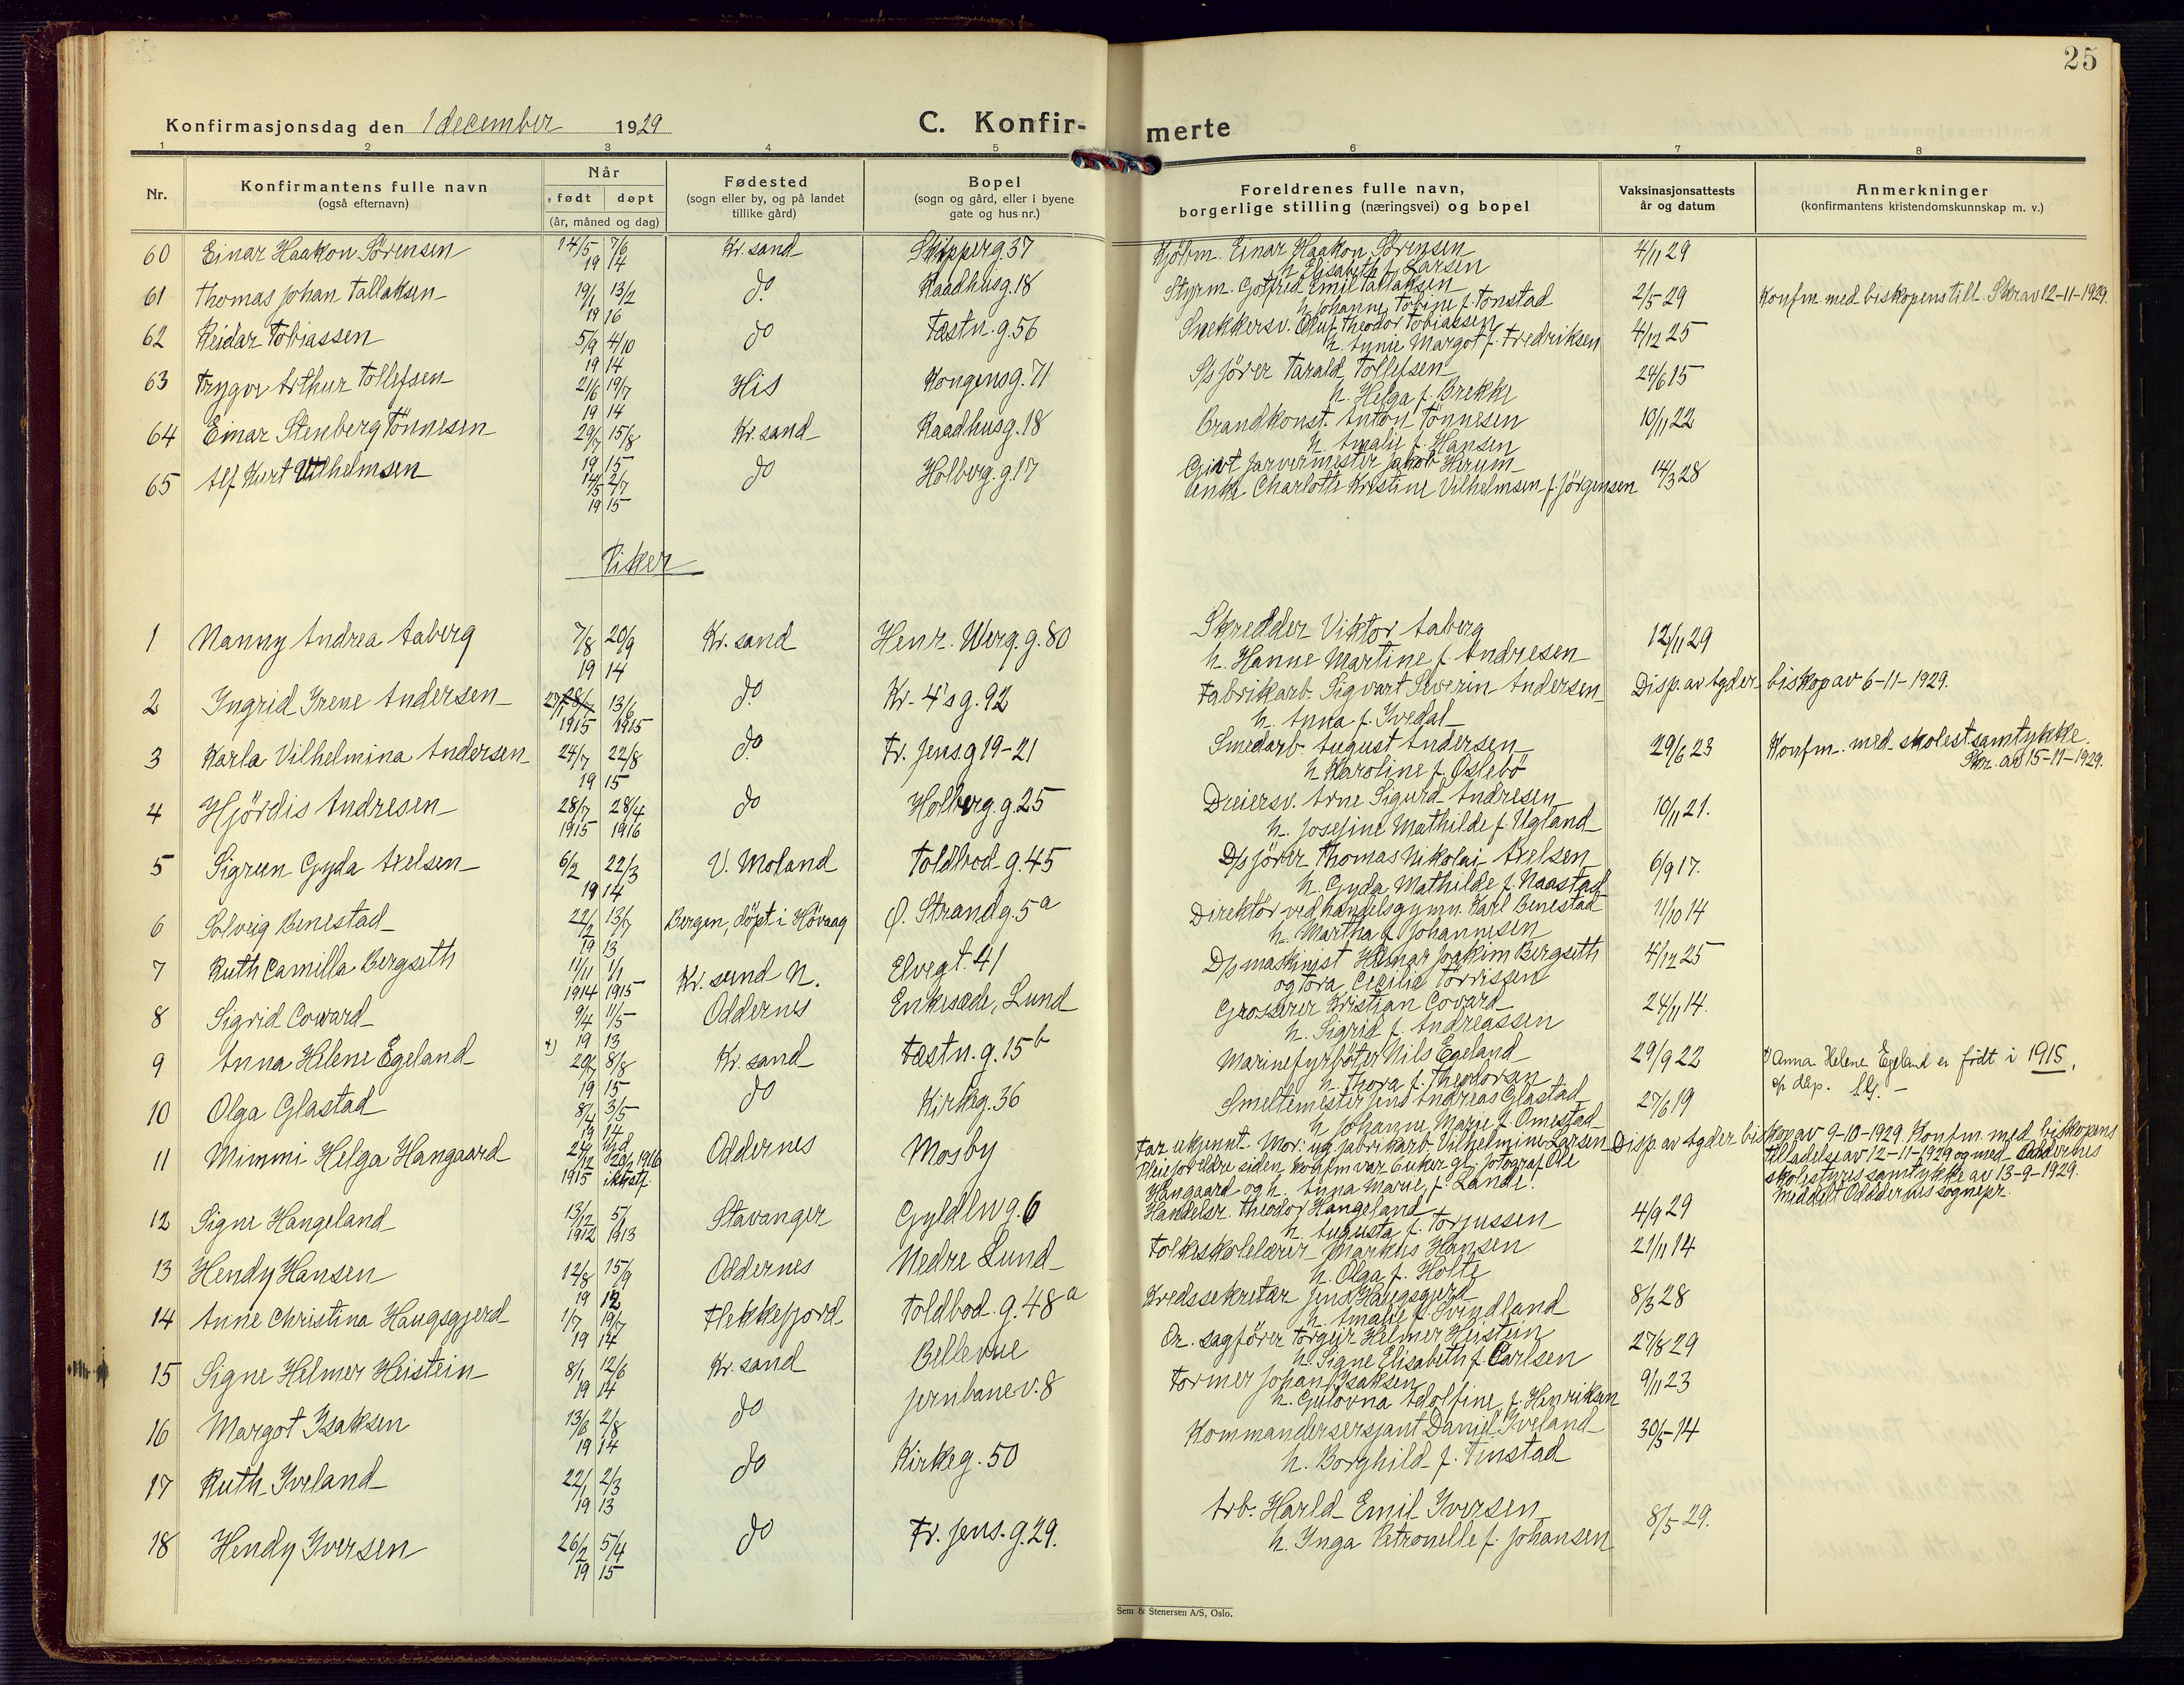 25
Konfirmasjonsdag den 1 december 1929
C. Konfir- merte
1 2 3 4 5 6 7 8
Nr.
Konfirmantens fulle navn
(også efternavn)
Når
født døpt
(år, måned og dag)
Fødested
(sogn eller by, og på landet
tillike gård)
Bopel
(sogn og gård, eller i byene
gate og hus nr.)
Foreldrenes fulle navn,
borgerlige stilling (næringsvei) og bopel
Vaksinasjonsattests
år og datum
Anmerkninger
(konfirmantens kristendomskunnskap m. v.)
60 Einar Haakon Sörensen 14/5 7/6 Kr. sand Skipperg. 37 Kjöbm. Einar Haakon Sörensen 4/11 29
19 14 h. Elisabeth f. Larsen
61 Thomas Johan Tallaksen 19/1 13/2 do Raadhusg. 18 Styrm. Gotfred Emil Tallaksen 2/5 29 Konfm. med biskopens till. Skr av 12-11-1929.
19 16 h. Johanne Tobine f. Tonstad
62 Reidar Tobiassen 5/9 4/10 do Tæstn. g. 56 Snekkersv. Oluf Theodor Tobiassen 4/12 25
19 14 h. Signe Margot f. Fredriksen
63 Trygve Arthur Tollefsen 21/6 19/7 His Kongensg. 71 S/s förer Tarald Tollefsen 24/6 15
19 14 h. Helga f. Brekke
64 Einar Stenberg Tönnesen 29/7 15/8 Kr. sand Raadhusg. 18 Brandkonst. Anton Tönnesen 10/11 22
19 15 h. Amalie f. Hansen
65 Alf Kurt Vilhelmsen 14/5 2/7 do Holberg. g. 17 Garvermester Jakob Herum 14/3 28
19 15 Enke Charlotte Kristine Vilhelmsen f. Jörgensen
Piker
1 Nanny Andrea Aaberg 7/8 20/9 Kr. sand Henr. Werg. g. 80 Skredder Viktor Aaberg 12/11 29
19 14 h. Hanne Martine f. Andresen
2 Ingrid Irene Andersen 13/6 do Kr. 4's g. 92 Fabrikarb. Sigvart Severin Andersen Disp. av Agder biskop av 6-11-1929.
1915 1915 h. Anna f. Ivedal
3 Karla Vilhelmina Andersen 24/7 22/8 do Tr. Jens. g 19-21 Smedarb. August Andersen 29/6 23 Konfm. med skolest samtykke.
19 15 h. Karoline f. Oslebö Skr. av 15-11-1929.
4 Hjördis Andresen 28/7 28/4 do Holberg. g. 25 Dreiersv. Arne Sigurd Andresen 10/11 21.
1915 1916 h. Josefine Mathilde f. Ugland
5 Sigrun Gyda Axelsen 6/2 22/3 V. Moland Toldbod g. 45 D/s förer Thomas Nikolai Axelsen 6/9 17.
19 14 h. Gyda Mathilde f. Naastad
6 Solveig Benestad 22/2 13/7 Bergen, döpt i Hövaag Ö. Strandg. 5a Direktör ved handelsgymn. Karl Benestad 11/10 14
19 13 h. Martha f. Johannesen
7 Ruth Camilla Bergseth 11/11 1/1 Kr. sund N. Elvegt. 41 D/s maskinist Hilmar Joakim Bergseth 4/12 25
1914 1915 og Tora Cecilie Törrissen
8 Sigrid Coward 9/4 11/5 Oddernes Enkesæde, Lund Grosserer Kristian Coward 24/11 14.
19 13 h. Sigrid f. Andreassen
9 Anna Helene Egeland x) 20/7 8/8 Kr. sand Tæstn. g. 15b Marinefyrböter Nils Egeland 29/9 22 x) Anna Helene Egeland er födt i 1915,
19 15 h. Thora f. Theodorsen
10 Olga Glastad 8/4 3/5 do Kirkeg. 36 Smeltemester Jens Andreas Glastad 27/6 19
19 14 h. Johanne Marie f. Omestad
11 Mimmi Helga Hangaard 24/12 Oddernes Mosby Far ukjennt. Mor: ug. fabrikarb. Vilhelmine Larsen Disp. av Agder biskop av 9-10-1929. Konfm. med biskopens
1915 Pleieforeldre siden konfm var 6 uker gl. fotograf Ole tilladelse av 12-11-1929 og med Oddernes
Hangaard og h. Anna Marie f. Lande. skolestyres samtykke av 13-9-1929.
Meddelt Oddernes sognepr.
12 Signe Hangeland 13/12 5/1 Stavanger Gyldenl. g. 6 Handelsr. Theodor Hangeland 4/9 29
1912 1913 h. Augusta f. Torjussen
13 Hendy Hansen 12/8 15/9 Oddernes Nedre Lund Folkeskolelærer Markus Hansen 21/11 14
19 12 h. Olga f. Holte
14 Anne Christina Haugsgjerd 1/7 19/7 Flekkefjord Toldbod. g. 48a Kredssekretær Jens Haugsgjerd 8/3 28
19 14 h. Amalie f. Svindland
15 Signe Helmer Heistein 8/1 12/6 Kr. sand Bellevue Or. sagförer Torgeir Helmer Heistein 27/8 29
19 14 h. Signe Elisabeth f. Carlsen
16 Margot Isaksen 13/6 2/8 do Jernbanev. 8 Former Johan Isaksen 9/11 23
19 14 h. Gulovna Adolfine f. Henriksen
17 Ruth Iveland 22/1 2/3 do Kirkeg. 50 Kommandersersjant Daniel Iveland 30/5 14
19 13 h. Borghild f. Finstad
18 Hendy Iversen 26/2 5/4 do Tr. Jens. g. 29. Arb. Harld Emil Iversen 8/5 29.
19 15 h. Inga Petronelle f. Johansen
Sem & Stenersen A/S, Oslo.